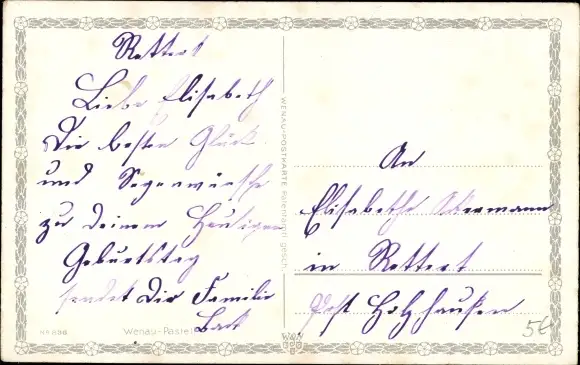 Rettert
Liebe Elisabeth
Die besten Glück
und Segenwünsche
zu Deinem Heutigen
Geburtstag
sendet Dir Familie
WENAU-POSTKARTE Patentamtl. gesch.
An
Elisabethe Akermann
in Rettert
Post Holzhausen
Wenau-Pastel
5€